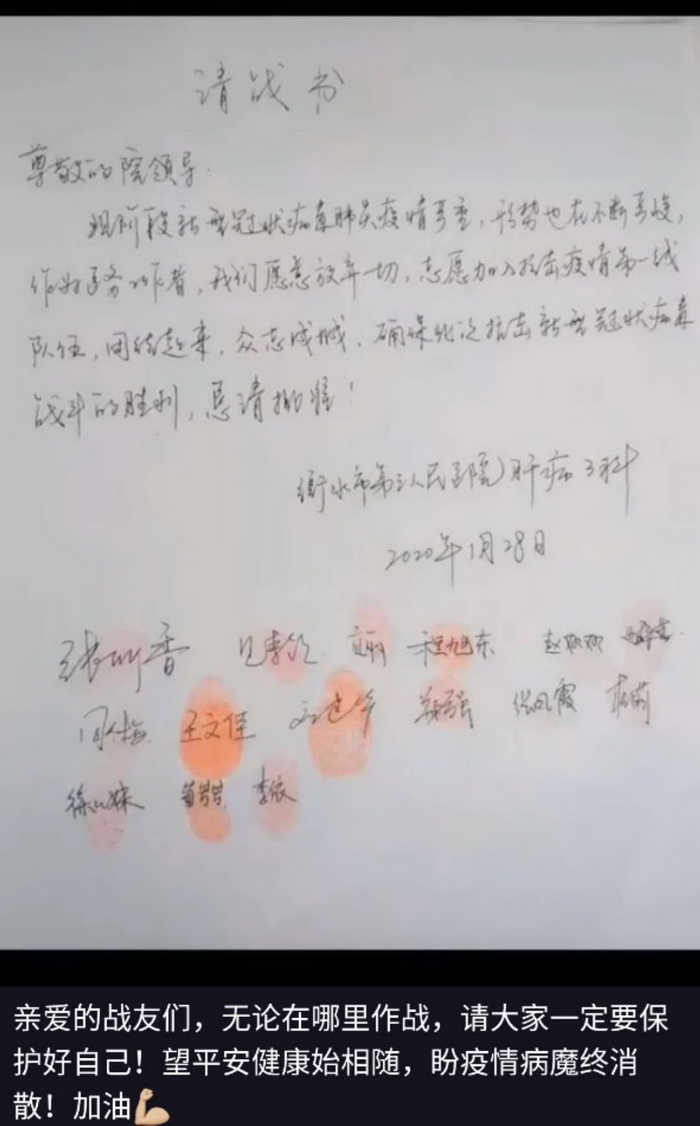 请战书
尊敬的院领导：
现阶段新型冠状病毒肺炎疫情严重，形势也在不断严峻，
作为医务工作者，我们愿意放弃一切，志愿加入抗击疫情第一线
队伍，团结起来，众志成城，确保此次抗击新型冠状病毒
战斗的胜利，恳请批准！
衡水市第三人民医院肝病3科
2020年1月28日
程旭东
王文佳
李依
亲爱的战友们，无论在哪里作战，请大家一定要保
护好自己！望平安健康始相随，盼疫情病魔终消
散！加油💪🏼